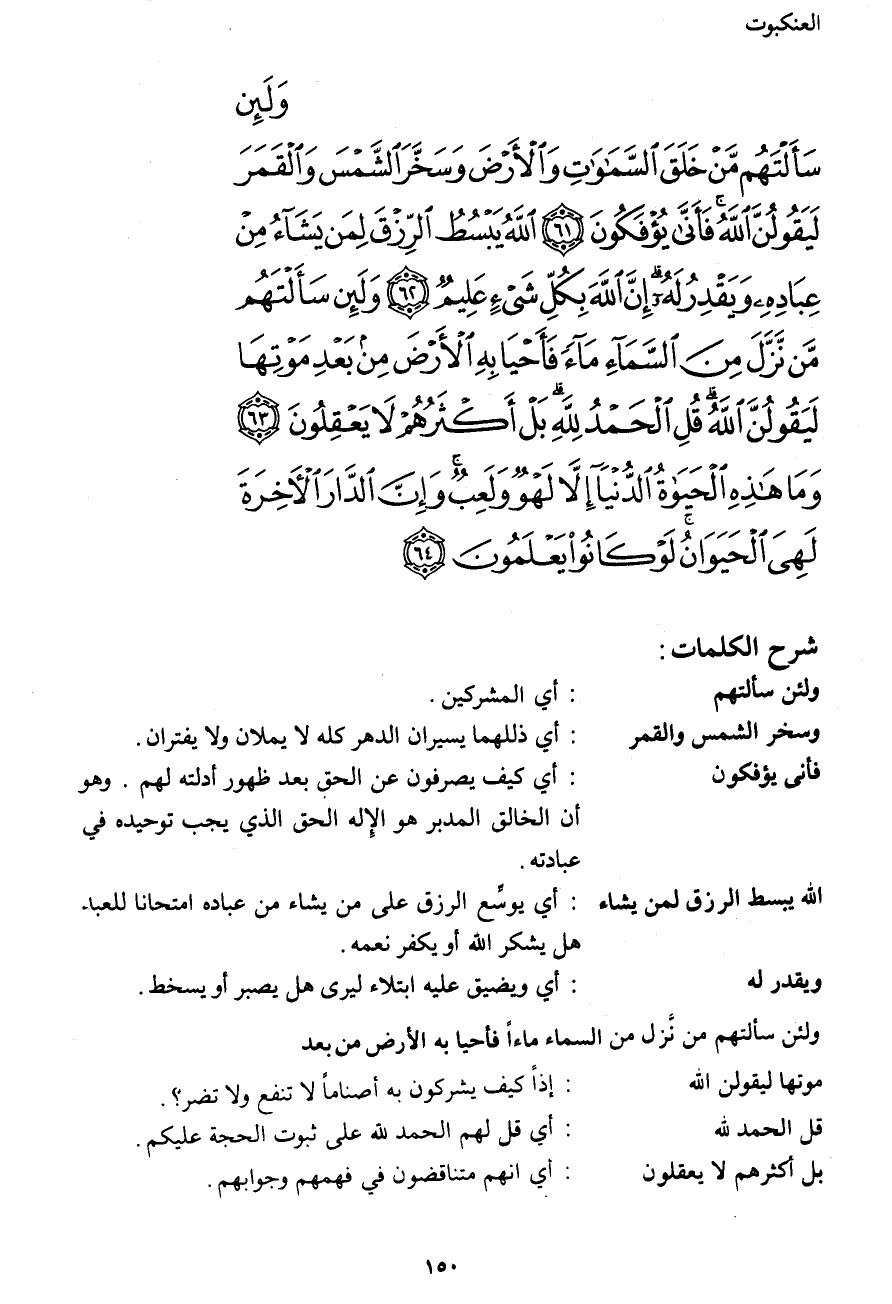 العنكبوت
وَلَئِن
سَأَلْتَهُم مَّنْ خَلَقَ السَّمَٰوَٰتِ وَالْأَرْضَ وَسَخَّرَ الشَّمْسَ وَالْقَمَرَ
لَيَقُولُنَّ اللَّهُ ۖ فَأَنَّىٰ يُؤْفَكُونَ ﴿٦١﴾ اللَّهُ يَبْسُطُ الرِّزْقَ لِمَن يَشَآءُ مِنْ
عِبَادِهِۦ وَيَقْدِرُ لَهُۥٓ ۚ إِنَّ اللَّهَ بِكُلِّ شَىْءٍ عَلِيمٌ ﴿٦٢﴾ وَلَئِن سَأَلْتَهُم
مَّن نَّزَّلَ مِنَ السَّمَآءِ مَآءً فَأَحْيَا بِهِ الْأَرْضَ مِنۢ بَعْدِ مَوْتِهَا
لَيَقُولُنَّ اللَّهُ ۚ قُلِ الْحَمْدُ لِلَّهِ ۚ بَلْ أَكْثَرُهُمْ لَا يَعْقِلُونَ ﴿٦٣﴾
وَمَا هَٰذِهِ الْحَيَوٰةُ الدُّنْيَآ إِلَّا لَهْوٌ وَلَعِبٌ ۚ وَإِنَّ الدَّارَ الْأَخِرَةَ
لَهِىَ الْحَيَوَانُ ۚ لَوْ كَانُوا۟ يَعْلَمُونَ ﴿٦٤﴾
شرح الكلمات :
ولئن سألتهم : أي المشركين .
وسخر الشمس والقمر : أي ذللهما يسيران الدهر كله لا يملان ولا يفتران .
فأنى يؤفكون : أي كيف يصرفون عن الحق بعد ظهور أدلته لهم . وهو
أن الخالق المدبر هو الإله الحق الذي يجب توحيده في
عبادته .
الله يبسط الرزق لمن يشاء : أي يوسِّع الرزق على من يشاء من عباده امتحانا للعباد
هل يشكر الله أو يكفر نعمه .
ويقدر له : أي ويضيق عليه ابتلاء ليرى هل يصبر أو يسخط .
ولئن سألتهم من نَّزل من السماء ماءاً فأحيا به الأرض من بعد
موتها ليقولن الله : إذاً كيف يشركون به أصناماً لا تنفع ولا تضر؟ .
قل الحمد لله : أي قل لهم الحمد لله على ثبوت الحجة عليكم .
بل أكثرهم لا يعقلون : أي انهم متناقضون في فهمهم وجوابهم .
١٥٠